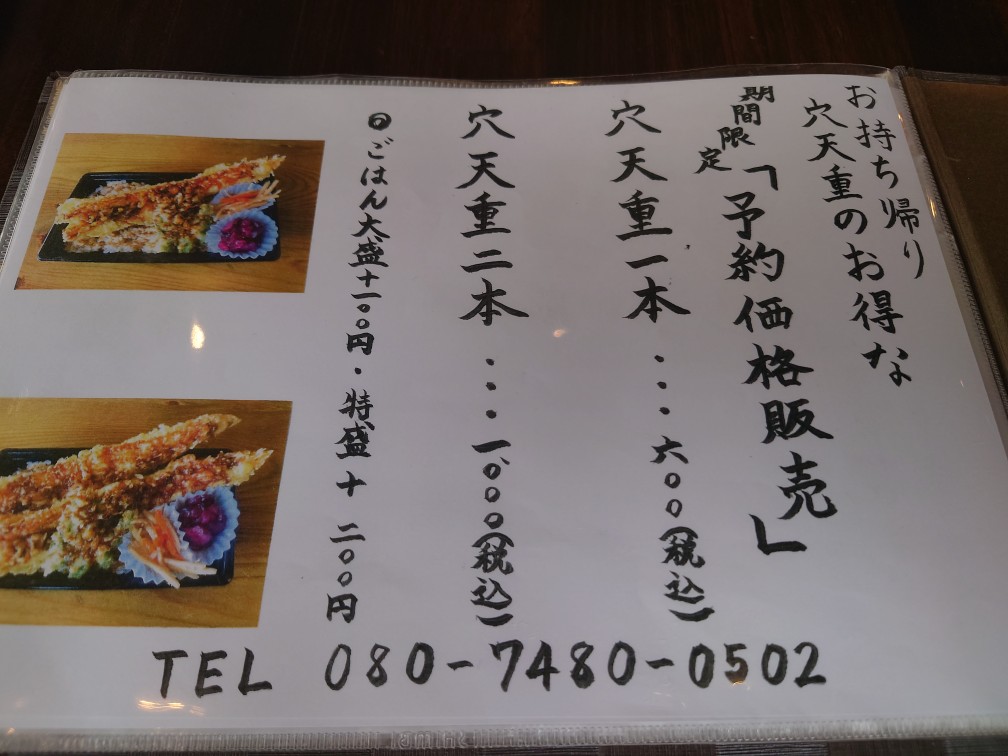 お持ち帰り
穴天重のお得な
期間限定
「予約価格販売」
穴天重一本・・・六〇〇(税込)
穴天重二本・・・一、〇〇〇(税込)
◎ごはん大盛+一〇〇円・特盛+二〇〇円
TEL 080-7480-0502